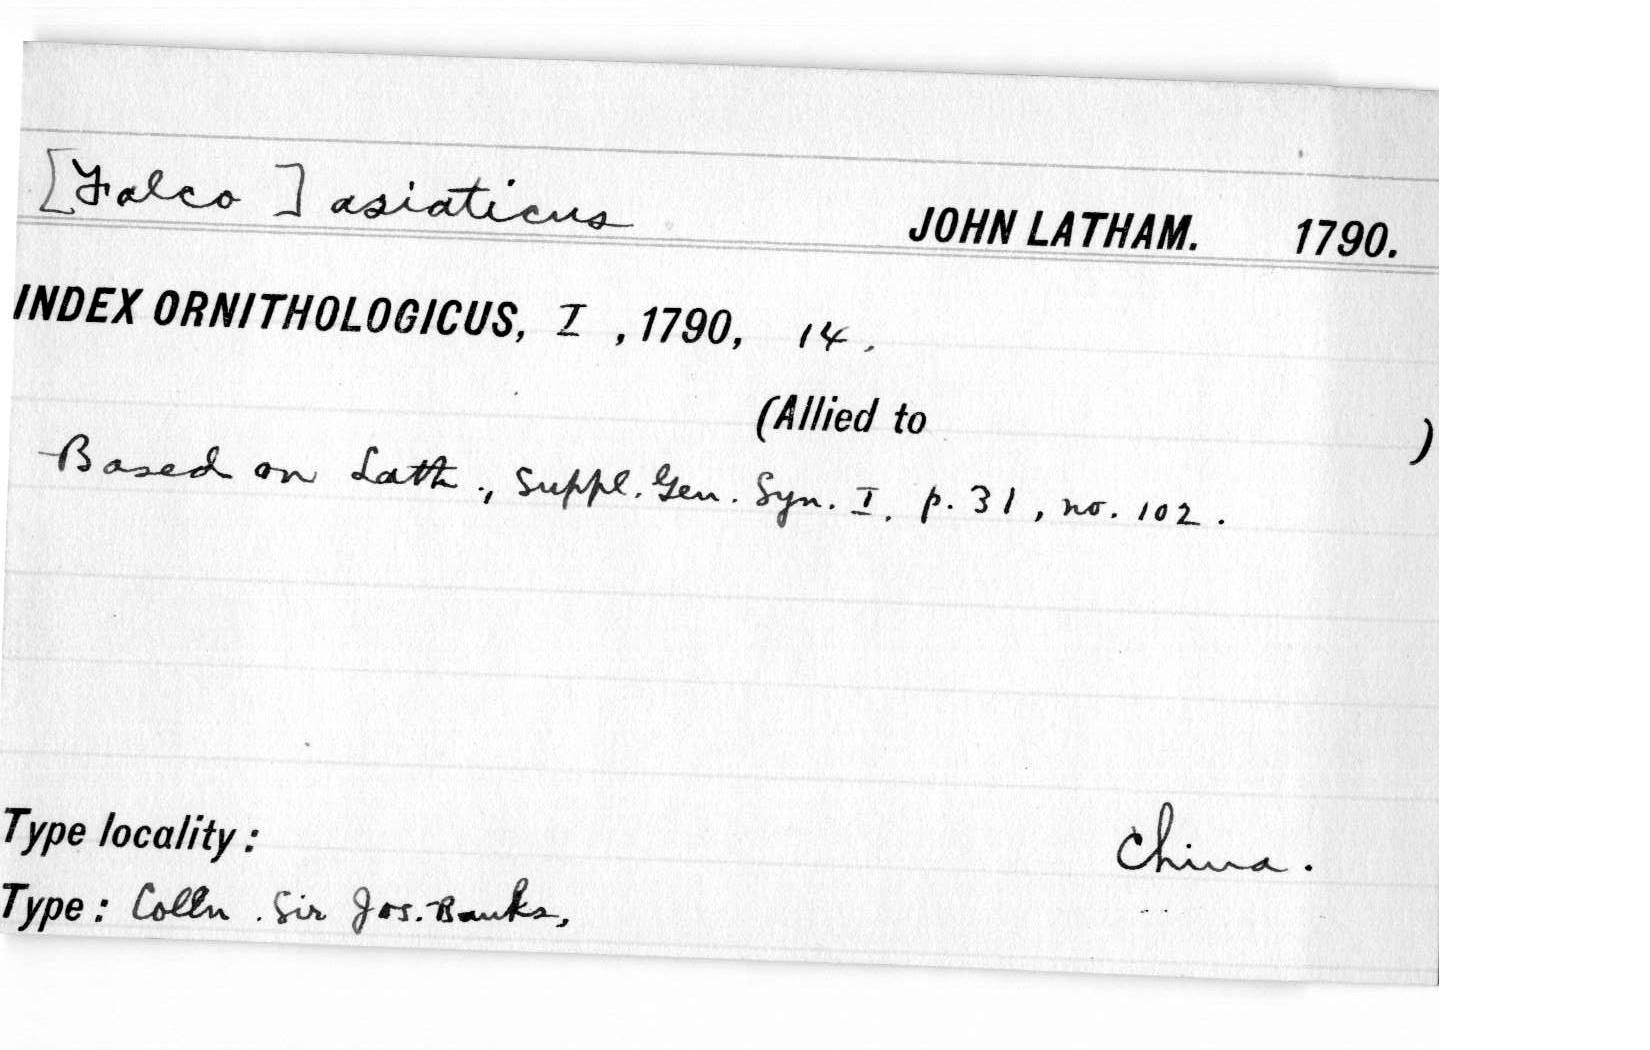 [Falco ] asiaticus JOHN LATHAM. 1790.
INDEX ORNITHOLOGICUS, I , 1790, 14.
(Allied to )
Based on Lath., Suppl. Gen. Syn. I. p. 31, no. 102.
Type locality : China.
Type : Colln. Sir Jos. Banks,